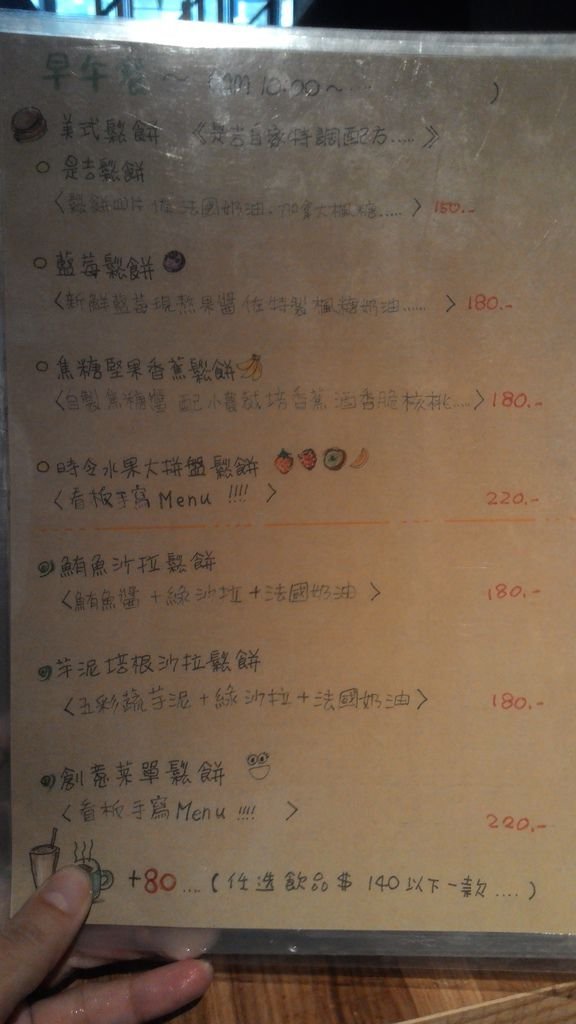 早午餐~ (AM 10:00~ ...... )
美式鬆餅 《是吉自家特調配方.....》
是吉鬆餅
〈鬆餅四片佐法國奶油.加拿大楓糖.....〉 150.-
藍莓鬆餅
〈新鮮藍莓現熬果醬佐特製楓糖奶油......〉 180.-
焦糖堅果香蕉鬆餅
〈自製焦糖醬 配小農栽培香蕉 酒香脆核桃....〉 180.-
時令水果大拼盤鬆餅
〈看板手寫Menu !!!! 〉 220.-
鮪魚沙拉鬆餅
〈鮪魚醬+綠沙拉+法國奶油 〉 180.-
芋泥培根沙拉鬆餅
〈五彩蔬芋泥+綠沙拉+法國奶油〉 180.-
創意菜單鬆餅
〈看板手寫Menu !!!! 〉 220.-
+80 .... (任選飲品$ 140以下一款 ....)